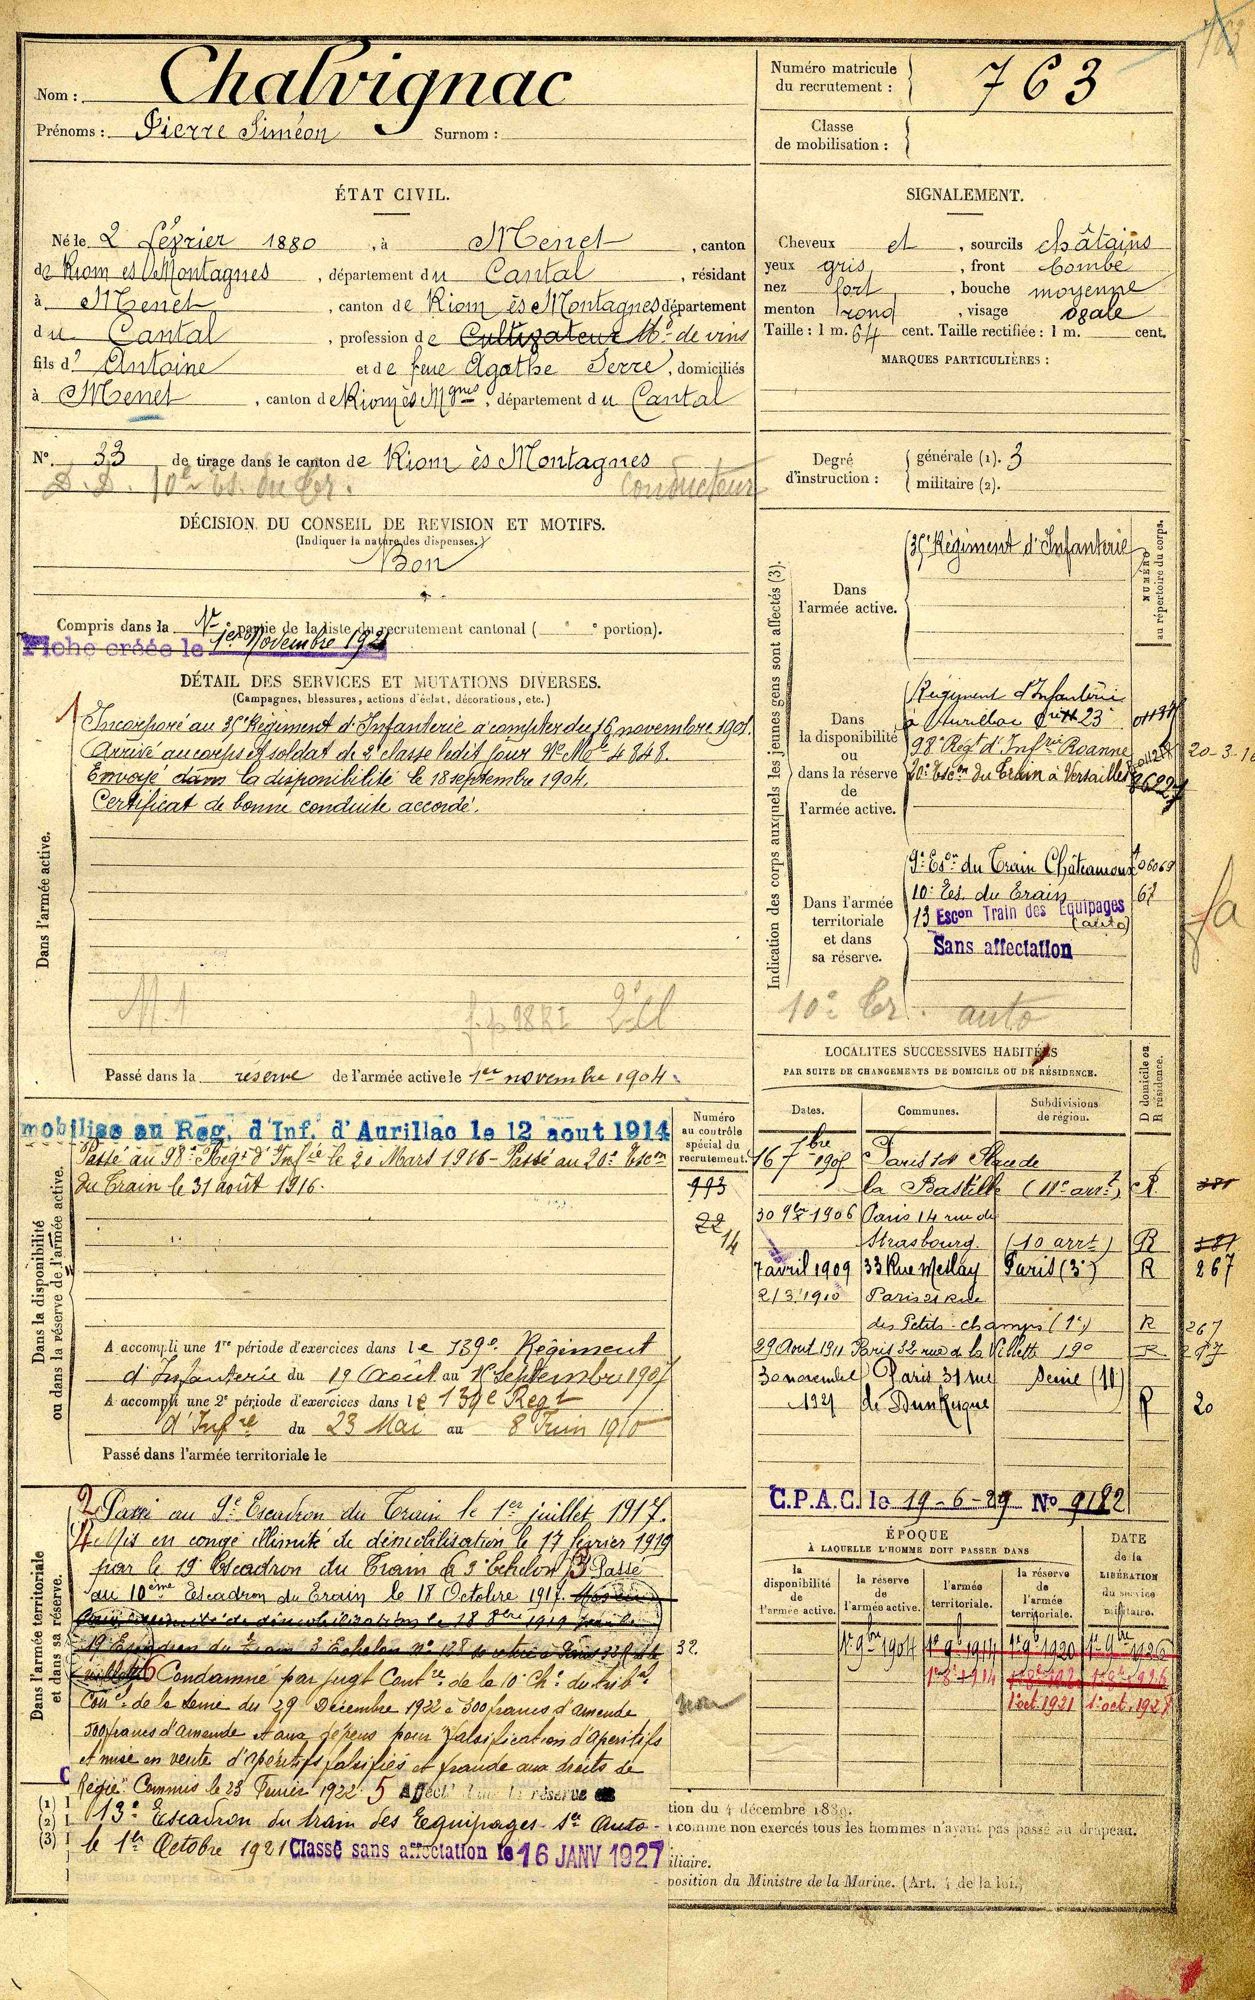 Nom : Chalvignac
Prénoms : Pierre Siméon Surnom :
Numéro matricule du recrutement : 763
Classe de mobilisation :
ÉTAT CIVIL.
Né le 2 février 1880, à Menet, canton
de Riom ès Montagnes, département du Cantal, résidant
à Menet, canton de Riom ès Montagnes département
du Cantal, profession de Cultivateur Md de vins
fils d' Antoine et de feue Agathe Serre, domiciliés
à Menet, canton de Riom ès Mgnes, département du Cantal
N° 33 de tirage dans le canton de Riom ès Montagnes
Conducteur
SIGNALEMENT.
Cheveux et, sourcils châtains
yeux gris, front bombé
nez fort, bouche moyenne
menton rond, visage ovale
Taille : 1 m. 64 cent. Taille rectifiée : 1 m. cent.
MARQUES PARTICULIÈRES :
Degré d'instruction : générale (1). 3
militaire (2).
DÉCISION DU CONSEIL DE REVISION ET MOTIFS.
(Indiquer la nature des dispenses.)
Bon
Compris dans la partie de la liste du recrutement cantonal ( portion).
Fiche créée le 1er Novembre 1921
DÉTAIL DES SERVICES ET MUTATIONS DIVERSES.
(Campagnes, blessures, actions d'éclat, décorations, etc.)
Dans l'armée active.
1 Incorporé au 35e Régiment d'Infanterie à compter du 16 novembre 1901.
Arrivé au corps et soldat de 2e classe ledit jour No Mle 4848.
Envoyé dans la disponibilité le 18 septembre 1904.
Certificat de bonne conduite accordé.
98 RI 2e cl
Passé dans la réserve de l'armée active le 1er novembre 1904.
Indication des corps auxquels les jeunes gens sont affectés (3).
NUMÉRO au répertoire du corps.
Dans l'armée active.
35e Régiment d'Infanterie
Dans la disponibilité ou dans la réserve de l'armée active.
Régiment d'Infanterie
à Aurillac
98e Régt d'Infrie Roanne
20e Escon du Train à Versailles
20-3-16
Dans l'armée territoriale et dans sa réserve.
9e Escon du Train Châteauroux 06069
10e Es. du Train 67
13 Escon Train des Equipages
(auto)
Sans affectation
10e Tr. auto
LOCALITES SUCCESSIVES HABITÉES
PAR SUITE DE CHANGEMENTS DE DOMICILE OU DE RÉSIDENCE.
D domicile ou R résidence.
Dates. Communes. Subdivisions de région.
16 7bre 1905 Paris
la Bastille (11e arrt) R. 381
30 9bre 1906 Paris 14 rue de
Strasbourg. (10 arrt) R 381
7 avril 1909 33 Rue Meslay Paris (3e) R 267
2/3/1910 Paris 21 Rue
des Petits-champs (1e) R 267
29 Aout 1911 Paris 32 rue de la Villette 19e R 267
30 novembre 1921 Paris 31 rue de Dunkerque Seine (10) R 20
C.P.A.C. le 19-6-29 No 9182
Numéro au contrôle spécial du recrutement.
993
22
14
Dans la disponibilité ou dans la réserve de l'armée active.
mobilisé au Reg. d'Inf. d'Aurillac le 12 aout 1914
Passé au 98e Régt d'Infie le 20 Mars 1916 - Passé au 20e Escon
du Train le 31 août 1916.
A accompli une 1re période d'exercices dans le 139e Régiment
d'Infanterie du 19 Août au Septembre 1907
A accompli une 2e période d'exercices dans le 139e Regt
d'Infie du 23 Mai au 8 Juin 1910
Passé dans l'armée territoriale le
Dans l'armée territoriale et dans sa réserve.
2 Passé au 9e Escadron du Train le 1er juillet 1917.
4 Mis en congé illimité de démobilisation le 17 février 1919
par le 19e Escadron du Train 3e Echelon 3 Passé
au 10ème Escadron du Train le 18 Octobre 1917.
19e Escadron du Train 3 Echelon No 128
32.
6 Condamné par jugt Contre de la 10e Che du tribal
Corel de la Seine du 29 Décembre 1922 à 300 francs d'amende
500 francs d'amende et aux dépens pour falsification d'apéritifs
et mise en vente d'apéritifs falsifiés et fraude aux droits de
Régie. Commis le 23 Février 1922. 5 Affecté dans la réserve au
13e Escadron du train des Equipages Son Auto
le 1er Octobre 1921 Classé sans affectation le 16 JANV 1927
non
ÉPOQUE
À LAQUELLE L'HOMME DOIT PASSER DANS
la disponibilité de l'armée active. la réserve de l'armée active. l'armée territoriale. la réserve de l'armée territoriale. DATE de la LIBÉRATION du service militaire.
1er 9bre 1904 1er 9bre 1914 1er 9bre 1920 1er 9bre 1926
1er oct. 1921 1er oct. 1927
tion du 4 décembre 1889.
comme non exercés tous les hommes n'ayant pas passé au drapeau.
iliaire.
position du Ministre de la Marine. (Art. 4 de la loi.)
(1)
(2)
(3)